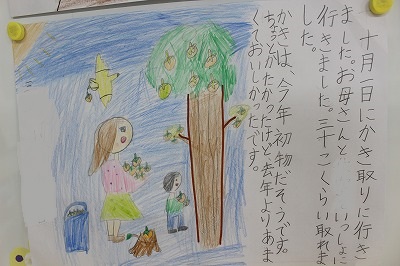 十月一日にかき取りに行き
ました。お母さんと いっしょに
行きました。三十こくらい取れま
した。
かきは、今年初物だそうです。
ちょっとかたかったけど去年よりあま
くておいしかったです。